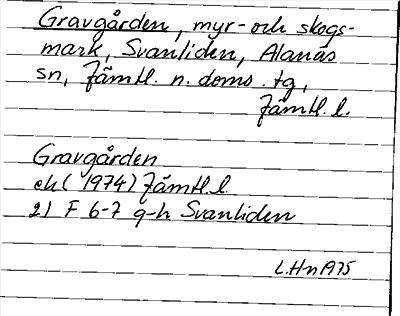 Gravgården, myr- och skogs-
mark, Svanliden, Alanäs
sn, Jämtl. n. doms. tg,
Jämtl. l.
Gravgården
ek (1974) Jämtl. l
21 F 6-7 g-h Svanliden
L.Hn 1975